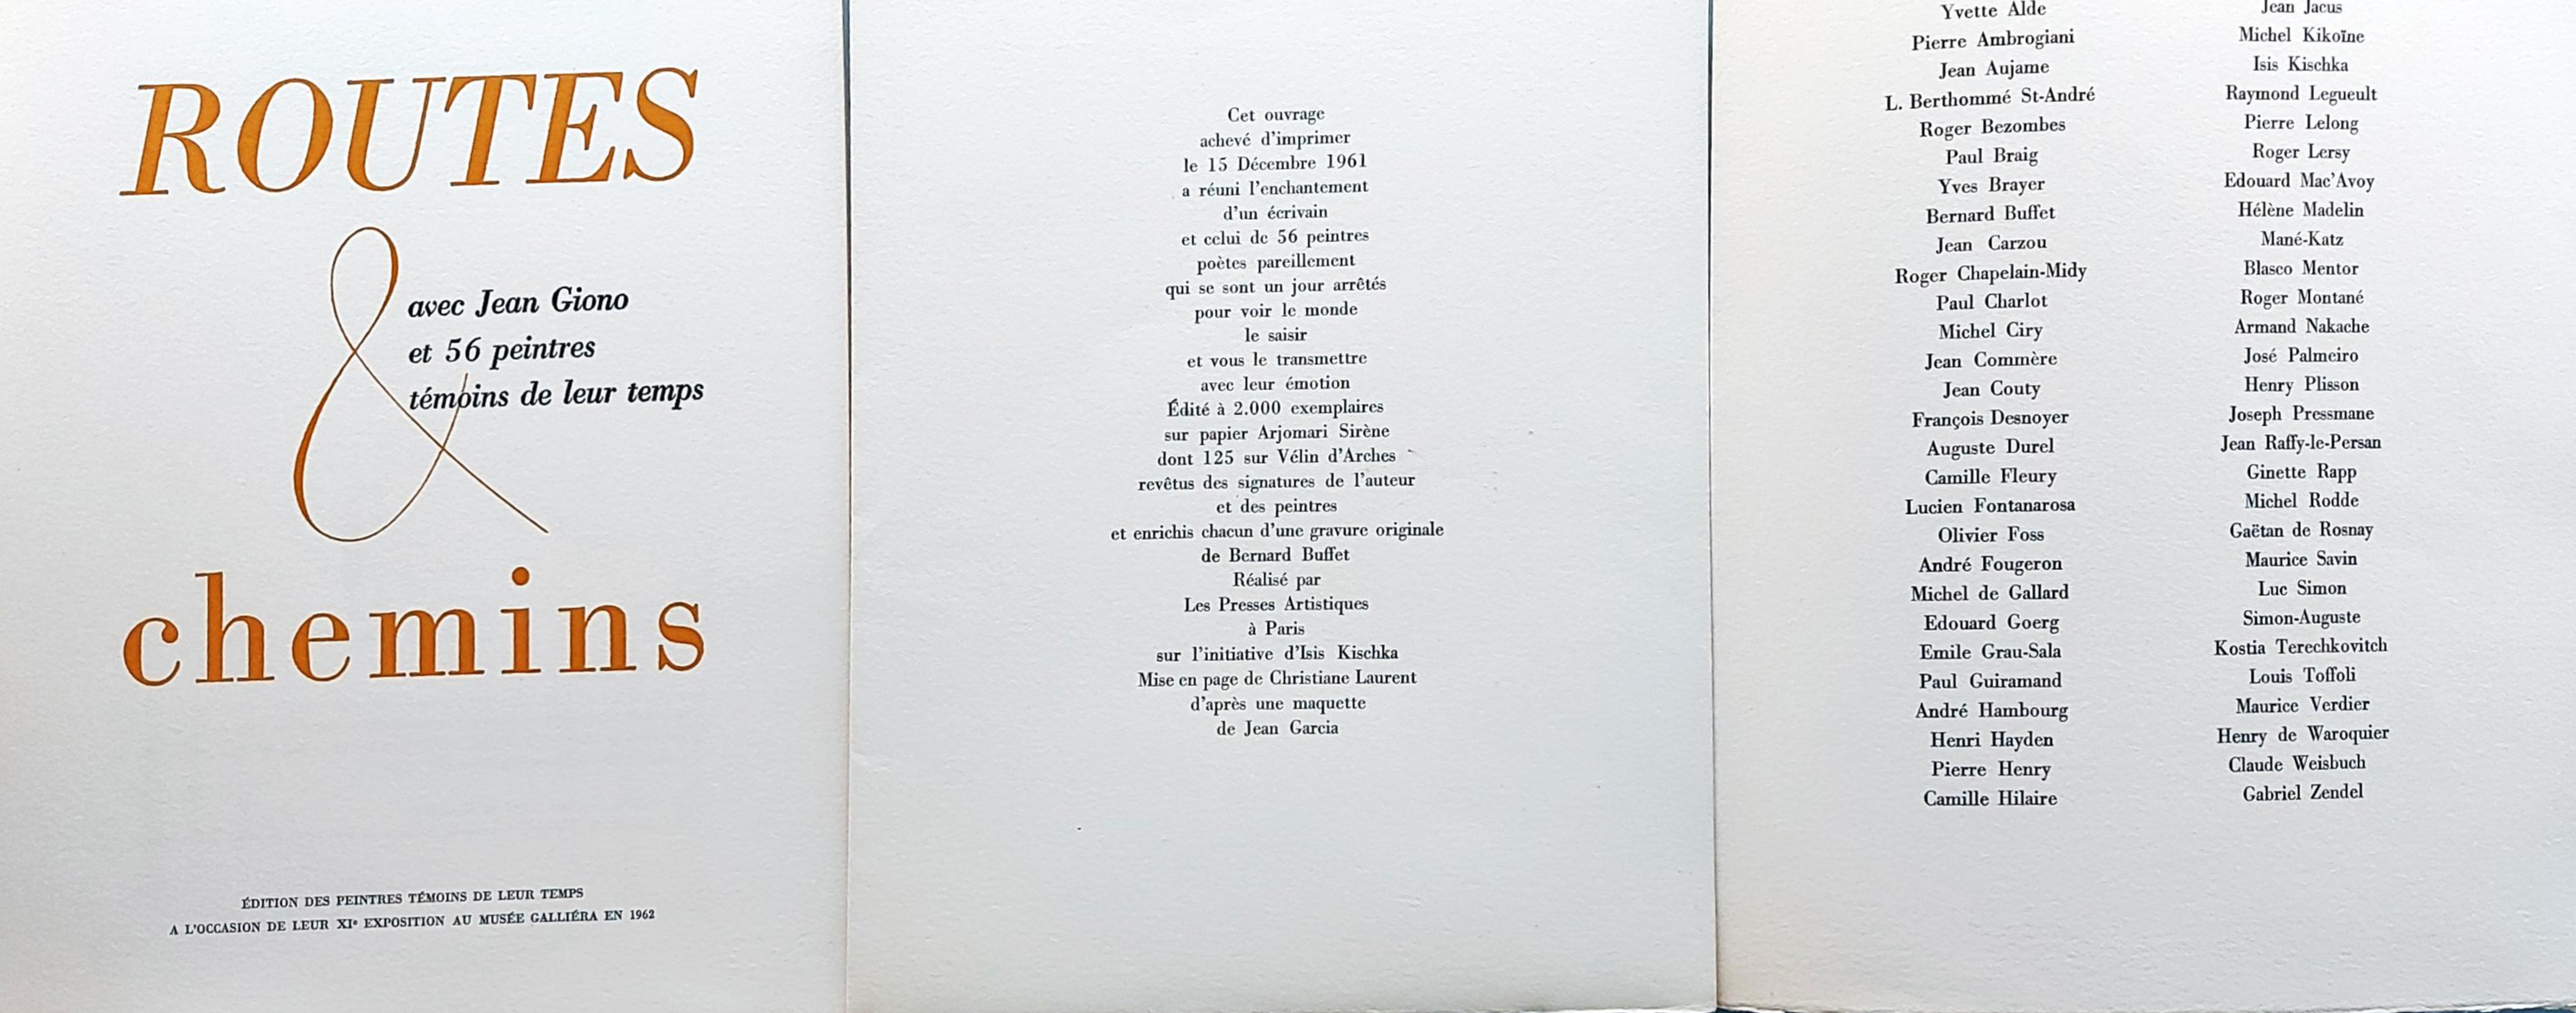 ROUTES
&
avec Jean Giono
et 56 peintres
témoins de leur temps
chemins
ÉDITION DES PEINTRES TÉMOINS DE LEUR TEMPS
A L'OCCASION DE LEUR XIe EXPOSITION AU MUSÉE GALLIÉRA EN 1962
Cet ouvrage
achevé d'imprimer
le 15 Décembre 1961
a réuni l'enchantement
d'un écrivain
et celui de 56 peintres
poètes pareillement
qui se sont un jour arrêtés
pour voir le monde
le saisir
et vous le transmettre
avec leur émotion
Édité à 2.000 exemplaires
sur papier Arjomari Sirène
dont 125 sur Vélin d'Arches
revêtus des signatures de l'auteur
et des peintres
et enrichis chacun d'une gravure originale
de Bernard Buffet
Réalisé par
Les Presses Artistiques
à Paris
sur l'initiative d'Isis Kischka
Mise en page de Christiane Laurent
d'après une maquette
de Jean Garcia
Yvette Alde
Pierre Ambrogiani
Jean Aujame
L. Berthommé St-André
Roger Bezombes
Paul Braig
Yves Brayer
Bernard Buffet
Jean Carzou
Roger Chapelain-Midy
Paul Charlot
Michel Ciry
Jean Commère
Jean Couty
François Desnoyer
Auguste Durel
Camille Fleury
Lucien Fontanarosa
Olivier Foss
André Fougeron
Michel de Gallard
Edouard Goerg
Emile Grau-Sala
Paul Guiramand
André Hambourg
Henri Hayden
Pierre Henry
Camille Hilaire
Jean Jacus
Michel Kikoïne
Isis Kischka
Raymond Legueult
Pierre Lelong
Roger Lersy
Edouard Mac'Avoy
Hélène Madelin
Mané-Katz
Blasco Mentor
Roger Montané
Armand Nakache
José Palmeiro
Henry Plisson
Joseph Pressmane
Jean Raffy-le-Persan
Ginette Rapp
Michel Rodde
Gaëtan de Rosnay
Maurice Savin
Luc Simon
Simon-Auguste
Kostia Terechkovitch
Louis Toffoli
Maurice Verdier
Henry de Waroquier
Claude Weisbuch
Gabriel Zendel